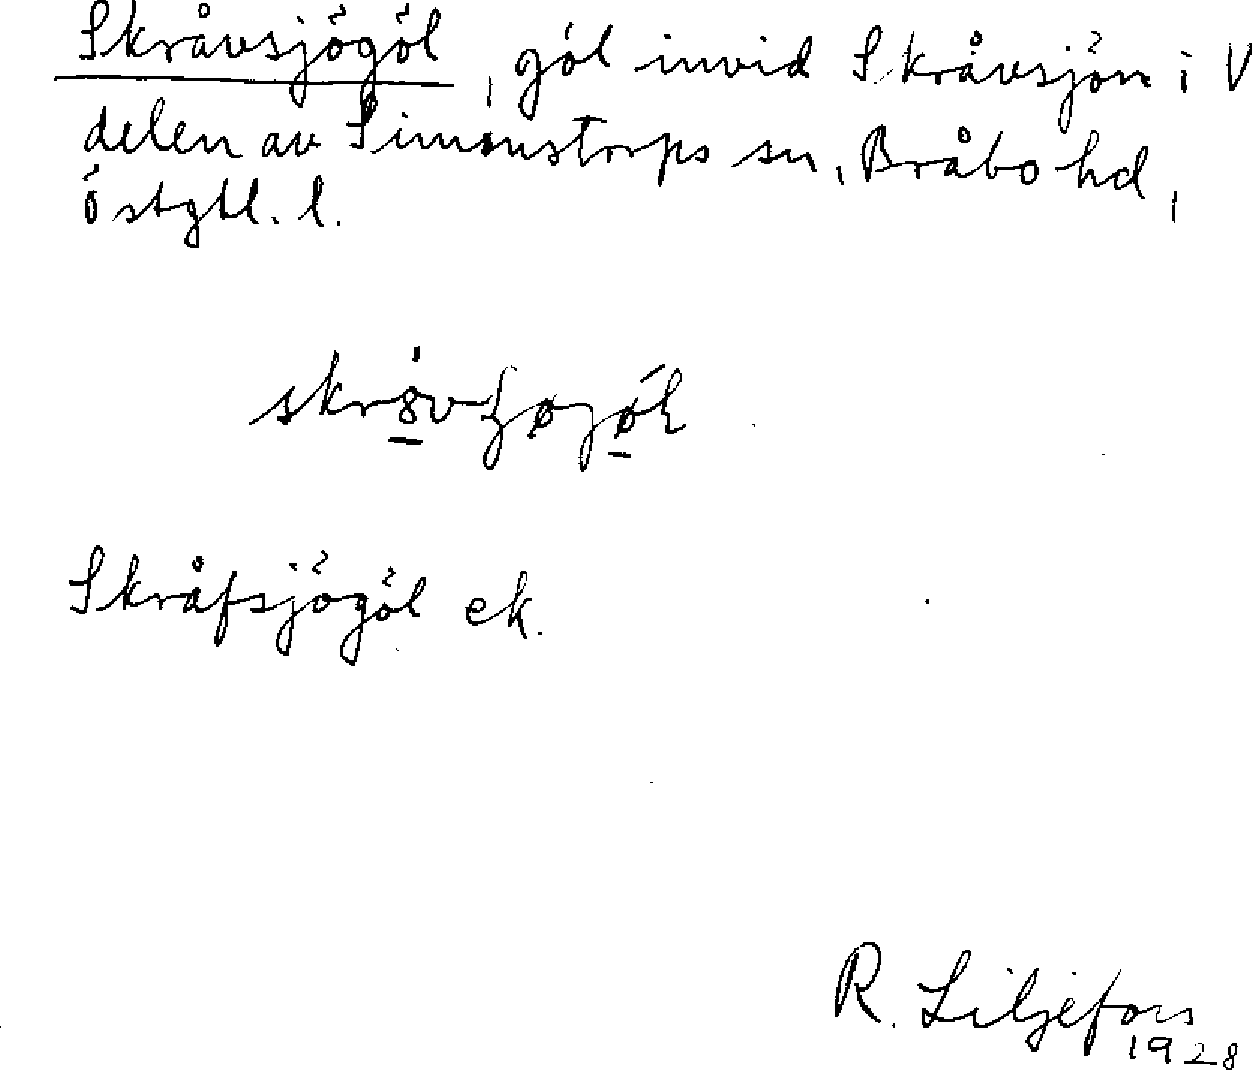 Skråvsjögöl, göl invid Skråvsjön i V
delen av Simonstorps sn, Bråbo hd,
Östgtl. l.
Skråfsjögöl ek.
R. Liljefors
1928